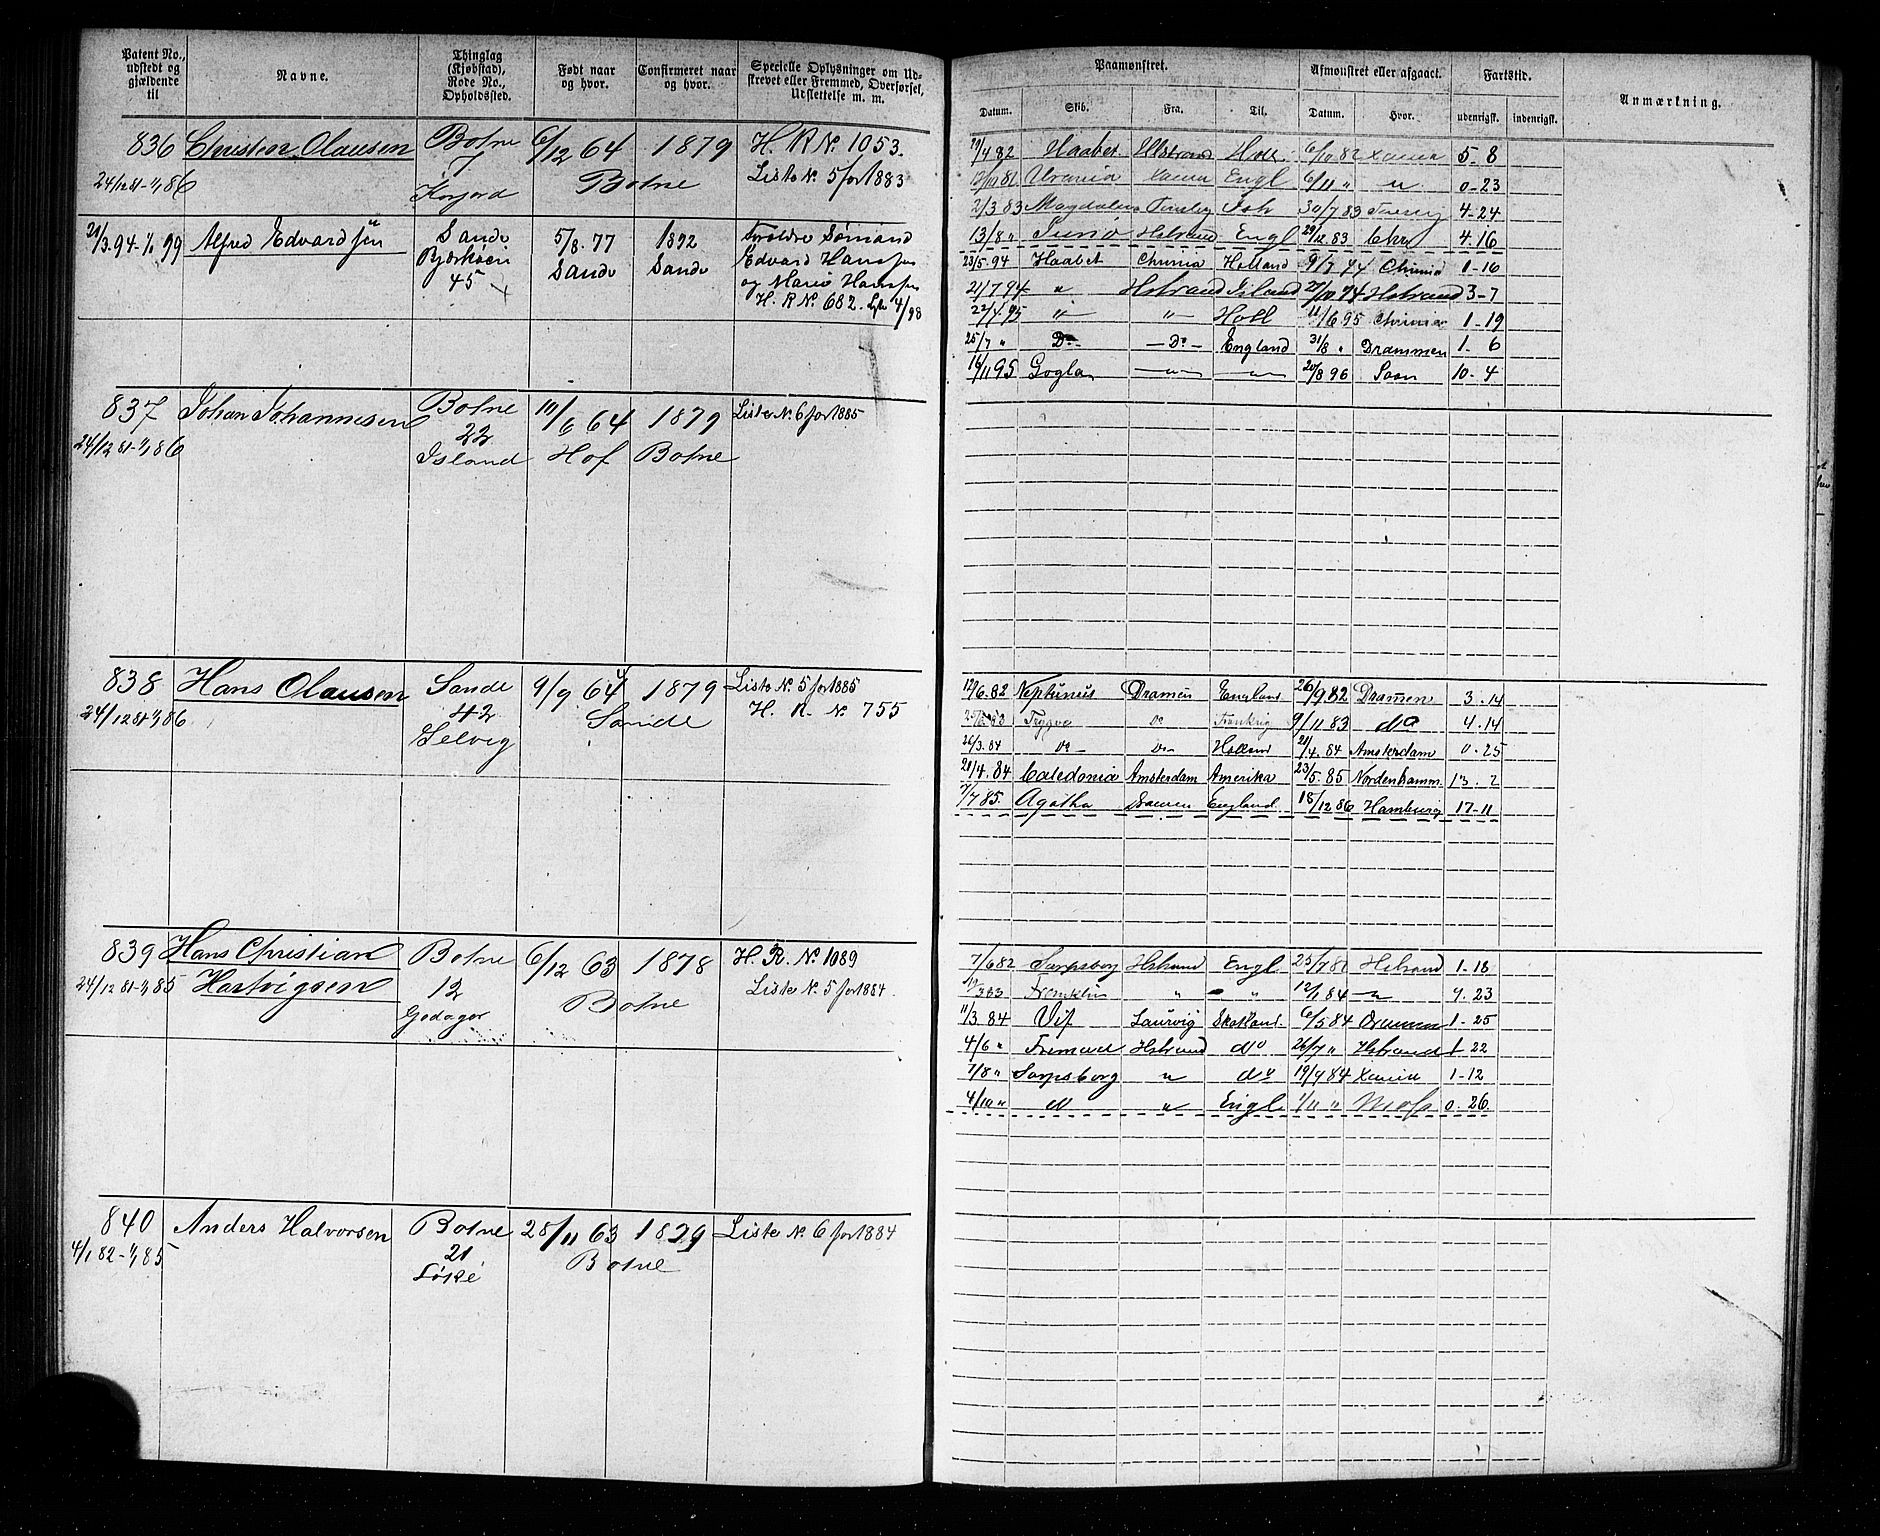 Patent No., udstedt og gjældende til
Navne.
Thinglag (Kjøbstad), Rode No., Opholdssted.
Født naar og hvor.
Confirmeret naar og hvor.
Specielle Oplysninger om Udskrevet eller Fremmed, Overførsel, Udslettelse m. m.
Paamønstret.
Afmønstret eller afgaaet.
Fartstid.
Anmærkning.
Datum. Skib. Fra. Til. Datum. Hvor. udenrigsk. indenrigsk.
836 Christen Olausen Botne 6/12 64 1879 H. R N. 1053.
24/12 81-1/1 86 7 Botne Liste N. 5 for 1883
21/3.94-1/1 99 Alfred Edvardsen Sande 5/8.77 1892 Forældre Sømand
Bjerkøen Sande Sande Edvard Hansen
45 og Marie Hansen
H. R N. 682. 4/98
29/4 82 Haabet Holl 6/10 82 Xania 5-8
Urania Xania Engl 6/11 " " 0-23
2/3 83 Magdalena 30/7 83 4-24
13/8 " Juno Hstrand Engl 29/12.83 Chra 4.16
23/5.94 Haabet Chrania Holland 9/7 94 Chrania 1-16
21/7 94 " Hstrand Island 27/10 94 Hstrand 3-7
22/4 95 " " Holl 11/6 95 Chrania 1-19
25/7 " Do Do England 31/8 " Drammen 1. 6
16/11 95 Gogla " " 20/8 96 Soon 10-4
837 Johan Johannesen Botne 10/6 64 1879 Liste N. 6 for 1885
24/12 81-1/1 86 22 Hof Botne
Island
838 Hans Olausen Sande 9/9. 64 1879 Liste N. 5 for 1885
24/12 81-1/1 86 42 Sande H. R. N. 755
Selvig
12/6.82 Neptunus Dramen England 26/9 82 Dramen 3.14
Trygve do Frankrig 9/11 83 do 4.14
26/3.84 do Do Holland 21/4.84 Amsterdam 0.25
21/4.84 Caledonia Amsterdam Amerika 23/5.85 Nordenhamm. 13.2
7/7 85. Agatha Dramen England. 18/12 86 Hamburg 17-11
839 Hans Christian Botne 6/12 63 1878 H. R. N. 1089
24/12 81-1/1 85 Hartvigsen 12 Botne Liste N. 5 for 1884.
Godager
7/6 82 Sarpsborg Hstrand Engl 1-18
Franklin " " 12/1 84 " 9.23
11/3 84 Vif Laurvig Skotland. 6/5 84 Drammen 1-25
4/6 " Hstrand do 26/7 " Hstrand 1 22
7/8 " Sarpsborg " do 19/9 84 Xania 1-12
4/10 " " " Engl 1/11 " Moss 0.26
840 Anders Halvorsen Botne 28/11 63 1879 Liste N. 6 for 1884
4/1 82-1/1 85 21 Botne